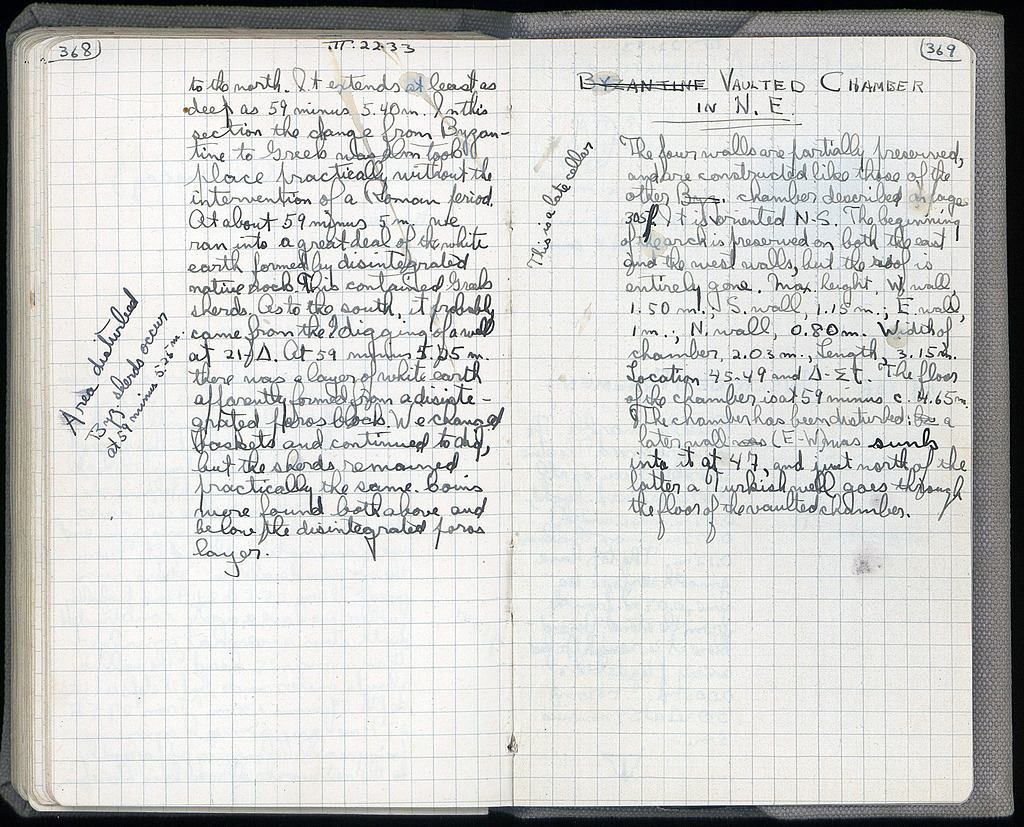 368
III.2233
to the north. It extends at least as
deep as 59 minus 5.40m. In this
section the change from Byzan-
tine to Greek took
place practically without the
intervention of a Roman period.
At about 59 minus 5 m. we
ran into a great deal of the white
earth formed by disintegrated
native rock. This contained Greek
sherds. As to the south, it probably
came from the digging of a well
at 21-Δ. At 59 minus 5.05 m.
there was a layer of white earth
apparently formed from a disinte-
grated poros block. We changed
baskets and continued to dig,
but the sherds remained
practically the same. Coins
were found both above and
below the disintegrated poros
layer.
Area disturbed
Byz. sherds occur
at 59 minus 5.25 m.
369
BYZANTINE VAULTED CHAMBER
IN N.E.
This is a late cellar
The four walls are partially preserved,
and are constructed like those of the
other Byz. chamber described on page
305f. It is oriented N-S. The beginning
of the arch is preserved on both the east
and the west walls, but the roof is
entirely gone. Max. height, W. wall,
1.50 m.; S. wall, 1.15 m.; E. wall,
1 m.; N. wall, 0.80 m. Width of
chamber, 2.03 m., Length, 3.15 m.
Location 45-49 and Δ-Στ. The floor
of the chamber is at 59 minus c. 4.65 m.
The chamber has been disturbed: a
later wall was (E-W) was sunk
into it at 47, and just north of the
latter a Turkish well goes through
the floor of the vaulted chamber.